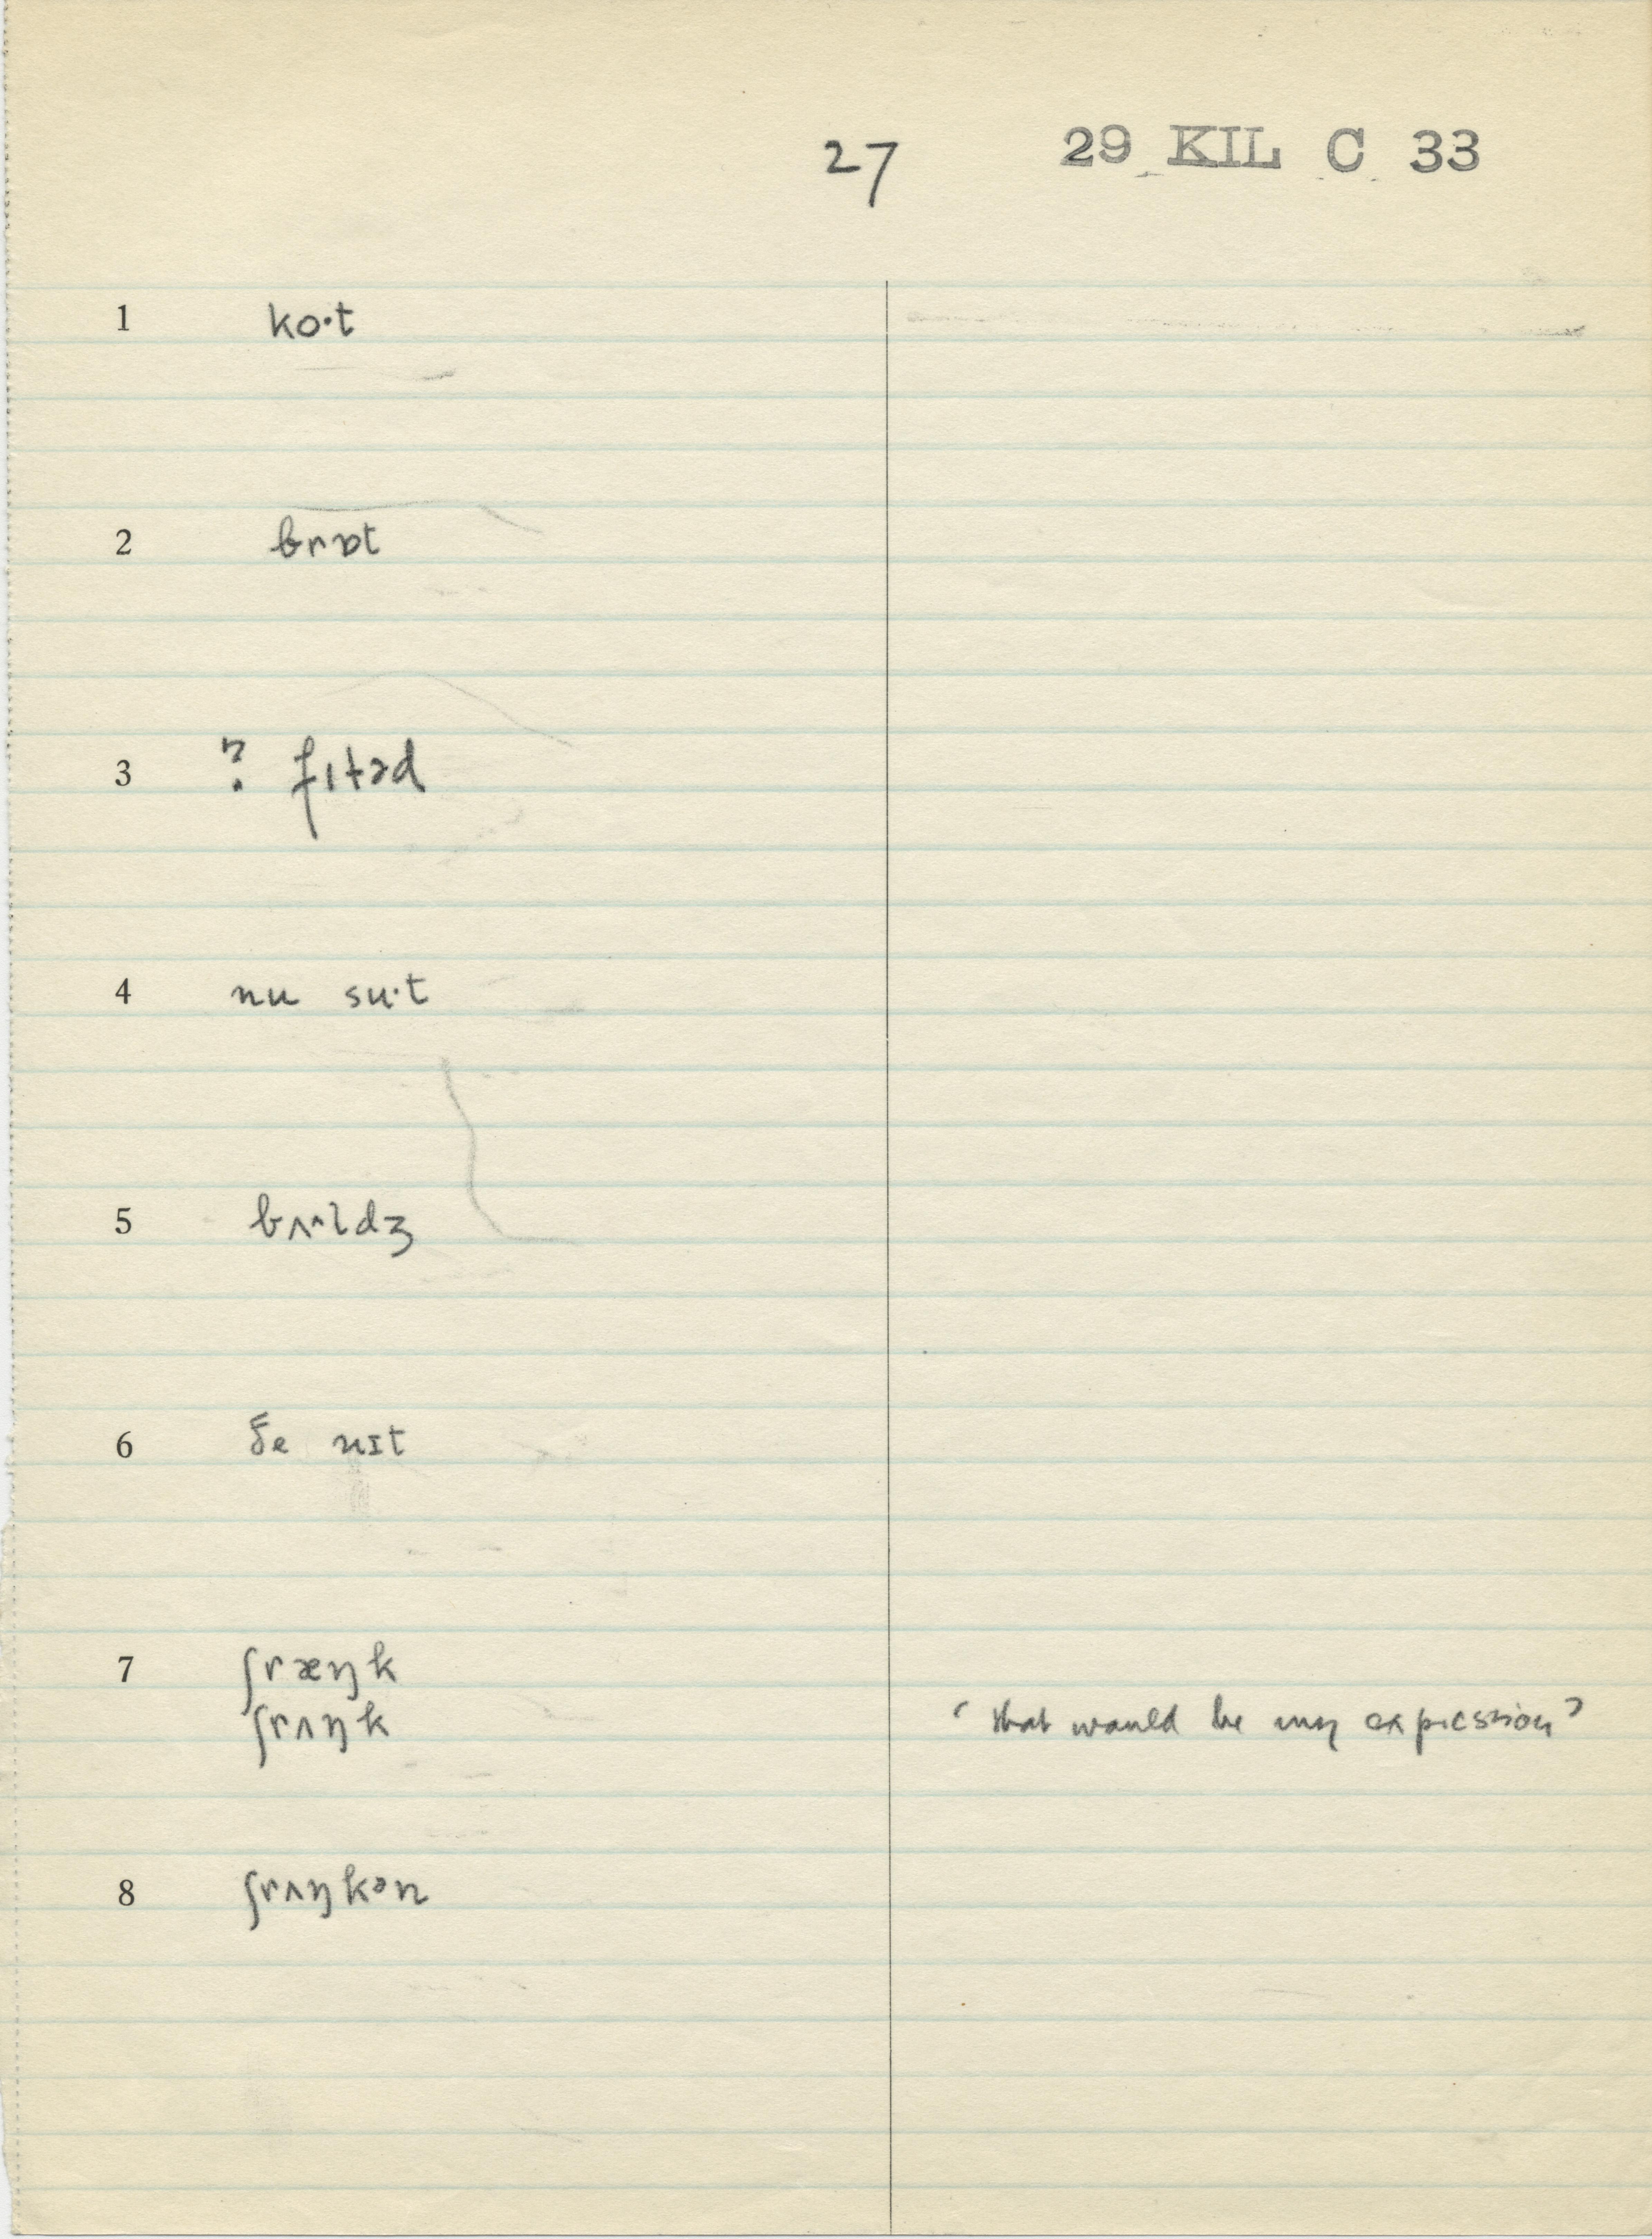 27 29 KIL C 33
1 ko·t
2 brɒt
3 ? fɪtəd
4 nu su·t
5 bʌ^ldʒ
6 ðe nɪt
7 ʃræŋk
ʃrʌŋk ‘that would be my expression’
8 ʃrʌŋkən